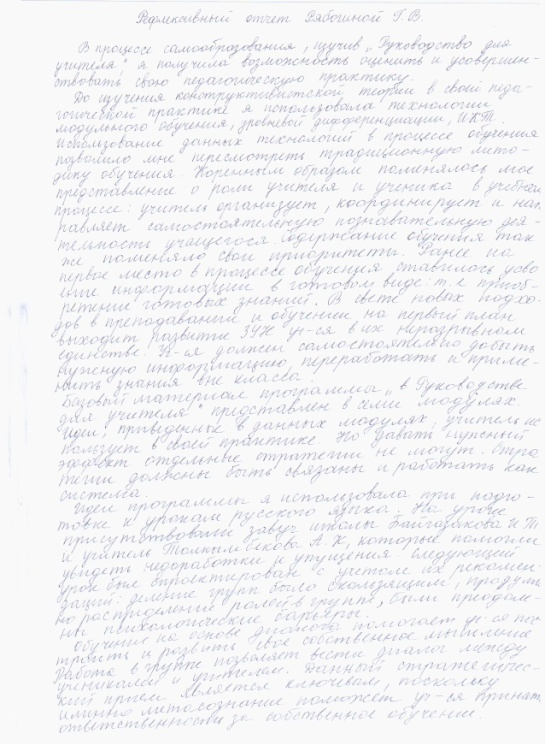 Рефлексивный отчет Рябогиной Г.В.
В процессе самообразования, изучив „Руководство для
учителя", я получила возможность оценить и усовершен-
ствовать свою педагогическую практику.
До изучения конструктивистской теории в своей педа-
гогической практике я использовала технологии
модульного обучения, уровневой дифференциации, ИКТ.
Использование данных технологий в процессе обучения
позволило мне пересмотреть традиционную мето-
дику обучения. Коренным образом поменялось мое
представление о роли учителя и ученика в учебном
процессе: учитель организует, координирует и нап
равляет самостоятельную познавательную дея-
тельность учащегося. Содержание обучения так
же поменяло свои приоритеты. Ранее на
первое место в процессе обучения ставилось усво
ение информации в готовом виде: т.е приоб-
ретение готовых знаний. В свете новых подхо-
дов в преподавании и обучении на первый план
выходит развитие ЗУН уч-ся в их неразрывном
единстве. Уч-ся должен самостоятельно добыть
нужную информацию, переработать и приме-
нить знания вне класса.
Базовый материал программы „в Руководстве
для учителя" представлен в семи модулях.
Идеи, приведенные в данных модулях, учитель ис
пользует в своей практике. Но давать нужный
эффект отдельные стратегии не могут. Стра
тегии должны быть связаны и работать как
система.
Идеи программы я использовала при подго-
товке к урокам русского языка. На уроке
присутствовали завуч школы Байгазакова
и учитель А.К, которые помогли
увидеть недоработки и упущения. Следующий
урок был спроектирован с учетом их рекомен
даций: деление групп было скользящим, продума
но распределение ролей в группе, были преодоле-
ны психологические барьеры.
Обучение на основе диалога помогает уч-ся пос
троить и развить свое собственное мышление
Работа в группе позволяет вести диалог между
учениками и учителем. Данный стратегичес-
кий прием является ключевым, поскольку
именно метосознание поможет уч-ся принять
ответственность за собственное обучение.